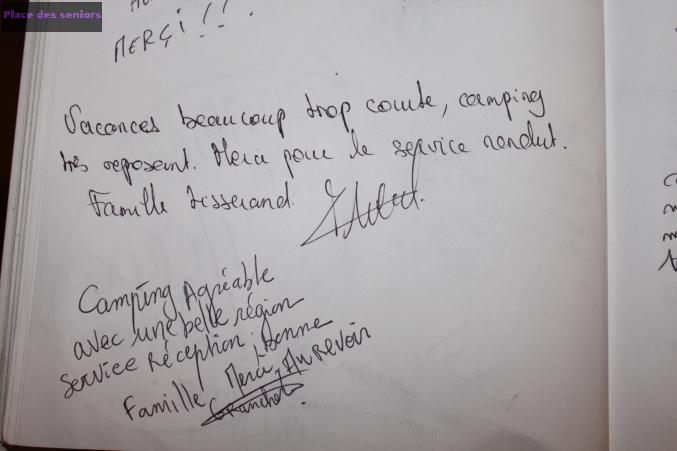 Place des seniors
MERÇI!!
Vacances beaucoup trop courte, camping
très reposant. Merci pour le service rendut.
Famille Tisserand.
Camping Agréable
avec une belle région
service Réception bonne
Merci, Au REVOIR
Famille